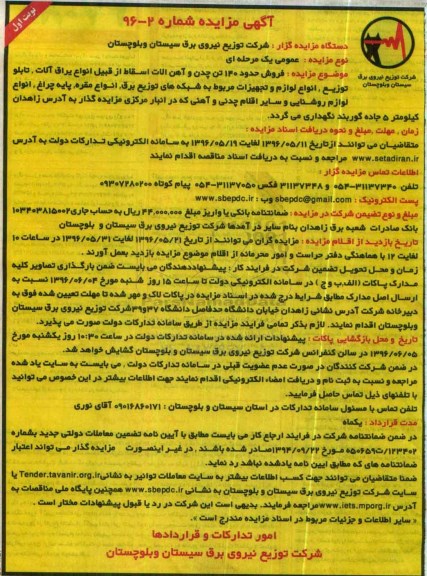 نوبت اول
آگهی مزایده شماره ۲-۹۶
شرکت توزیع نیروی برق
سیستان وبلوچستان
دستگاه مزایده گزار : شرکت توزیع نیروی برق سیستان وبلوچستان
نوع مزایده : عمومی یک مرحله ای
موضوع مزایده : فروش حدود ۱۴۰ تن چدن و آهن آلات اسقاط از قبیل انواع یراق آلات , تابلو
توزیع , انواع لوازم و تجهیزات مربوط به شبکه های توزیع برق, انواع مقره, پایه چراغ , انواع
لوازم روشنایی و سایر اقلام چدنی و آهنی که در انبار مرکزی مزایده گذار به آدرس زاهدان
کیلومتر ۵ جاده گوربند نگهداری می گردد.
زمان , مهلت ,مبلغ و نحوه دریافت اسناد مزایده :
متقاضیان می توانند ازتاریخ ۱۳۹۶/۰۵/۱۱ لغایت ۱۳۹۶/۰۵/۱۹ به سامانه الکترونیکی تدارکات دولت به آدرس
www.setadiran.ir مراجعه و نسبت به دریافت اسناد مناقصه اقدام نمایند
اطلاعات تماس مزایده گزار :
تلفن ۳۱۱۳۷۳۴۰-۰۵۴ و ۳۱۱۳۷۳۴۸ فکس ۳۱۱۳۷۰۵۰-۰۵۴ پیام کوتاه ۰۹۳۰۷۲۸۰۲۰۰
پست الکترونیک : sbepdc@gmail.com وب : www.sbepdc.ir
مبلغ و نوع تضمین شرکت در مزایده : ضمانتنامه بانکی یا واریز مبلغ ۴۴,۰۰۰,۰۰۰ ریال به حساب جاری۱۰۳۴۰۳۸۱۵۰۰۲
بانک صادرات شعبه برق زاهدان بنام سایر در آمدها شرکت توزیع نیروی برق سیستان و بلوچستان
تاریخ بازدید از اقلام مزایده : مزایده گران می توانند از تاریخ ۱۳۹۶/۰۵/۲۱ لغایت ۱۳۹۶/۰۵/۳۱ در ساعات ۱۰
لغایت ۱۲ با هماهنگی دفتر حراست و امور محرمانه از اقلام موضوع مزایده بازدید بعمل آورند .
زمان و محل تحویل تضمین شرکت در فرایند کار : پیشنهاددهندگان می بایست ضمن بارگذاری تصاویر کلیه
مدارک پاکات (الف,ب و ج ) در سامانه الکترونیکی دولت تا ساعت ۱۵ روز شنبه مورخ ۱۳۹۶/۰۶/۰۴ نسبت به
ارسال اصل مدارک مطابق شرایط درج شده در اسناد مزایده در پاکات لاک و مهر شده تا مهلت تعیین شده فوق به
دبیرخانه شرکت آدرس نشانی زاهدان خیابان دانشگاه حدفاصل دانشگاه ۳۹و۳۷ شرکت توزیع نیروی برق سیستان
وبلوچستان اقدام نمایند. لازم بذکر تمامی فرایند مزایده از طریق سامانه تدارکات دولت صورت می پذیرد.
تاریخ و محل بازگشایی پاکات : پیشنهادات ارائه شده در سامانه تدارکات دولت در ساعت ۱۰:۳۰ روز یکشنبه مورخ
۱۳۹۶/۰۶/۰۵ در سالن کنفرانس شرکت توزیع نیروی برق سیستان و بلوچستان گشایش خواهد شد.
در ضمن شرکت کنندگان در صورت عدم عضویت قبلی در سامانه تدارکات دولت , می بایست به سایت یاد شده
مراجعه و نسبت به ثبت نام و دریافت امضاء الکترونیکی اقدام نمایند جهت اطلاعات بیشتر در این خصوص می توانید
با تلفنهای ذیل تماس حاصل فرمایید.
تلفن تماس با مسئول سامانه تدارکات در استان سیستان و بلوچستان : ۰۹۰۱۶۸۶۰۱۷۱ آقای نوری
مدت قرارداد : یکماه
در ضمن ضمانتنامه شرکت در فرایند ارجاع کار می بایست مطابق با آیین نامه تضمین معاملات دولتی جدید بشماره
۱۲۳۴۰۲/ت۵۰۶۵۹ مورخ ۱۳۹۴/۰۹/۲۲صادر شده باشند . در غیر اینصورت مزایده گذار می تواند اعتبار
ضمانتنامه های که مطابق ایین نامه یادشده نباشد رد نماید.
ضمنا متقاضیان می توانند جهت کسب اطلاعات بیشتر به سایت معاملات توانیر به نشانیTender.tavanir.org.ir یا
سایت شرکت توزیع نیروی برق سیستان و بلوچستان به نشانی www.sbepdc.ir همچنین پایگاه ملی مناقصات به
www.iets.mporg.ir مراجعه فرمایند. بدیهی است این شرکت در رد یا قبول پیشنهادات مختار است .
« سایر اطلاعات و جزئیات مربوط در اسناد مزایده مندرج است ».
امور تدارکات و قراردادها
شرکت توزیع نیروی برق سیستان وبلوچستان